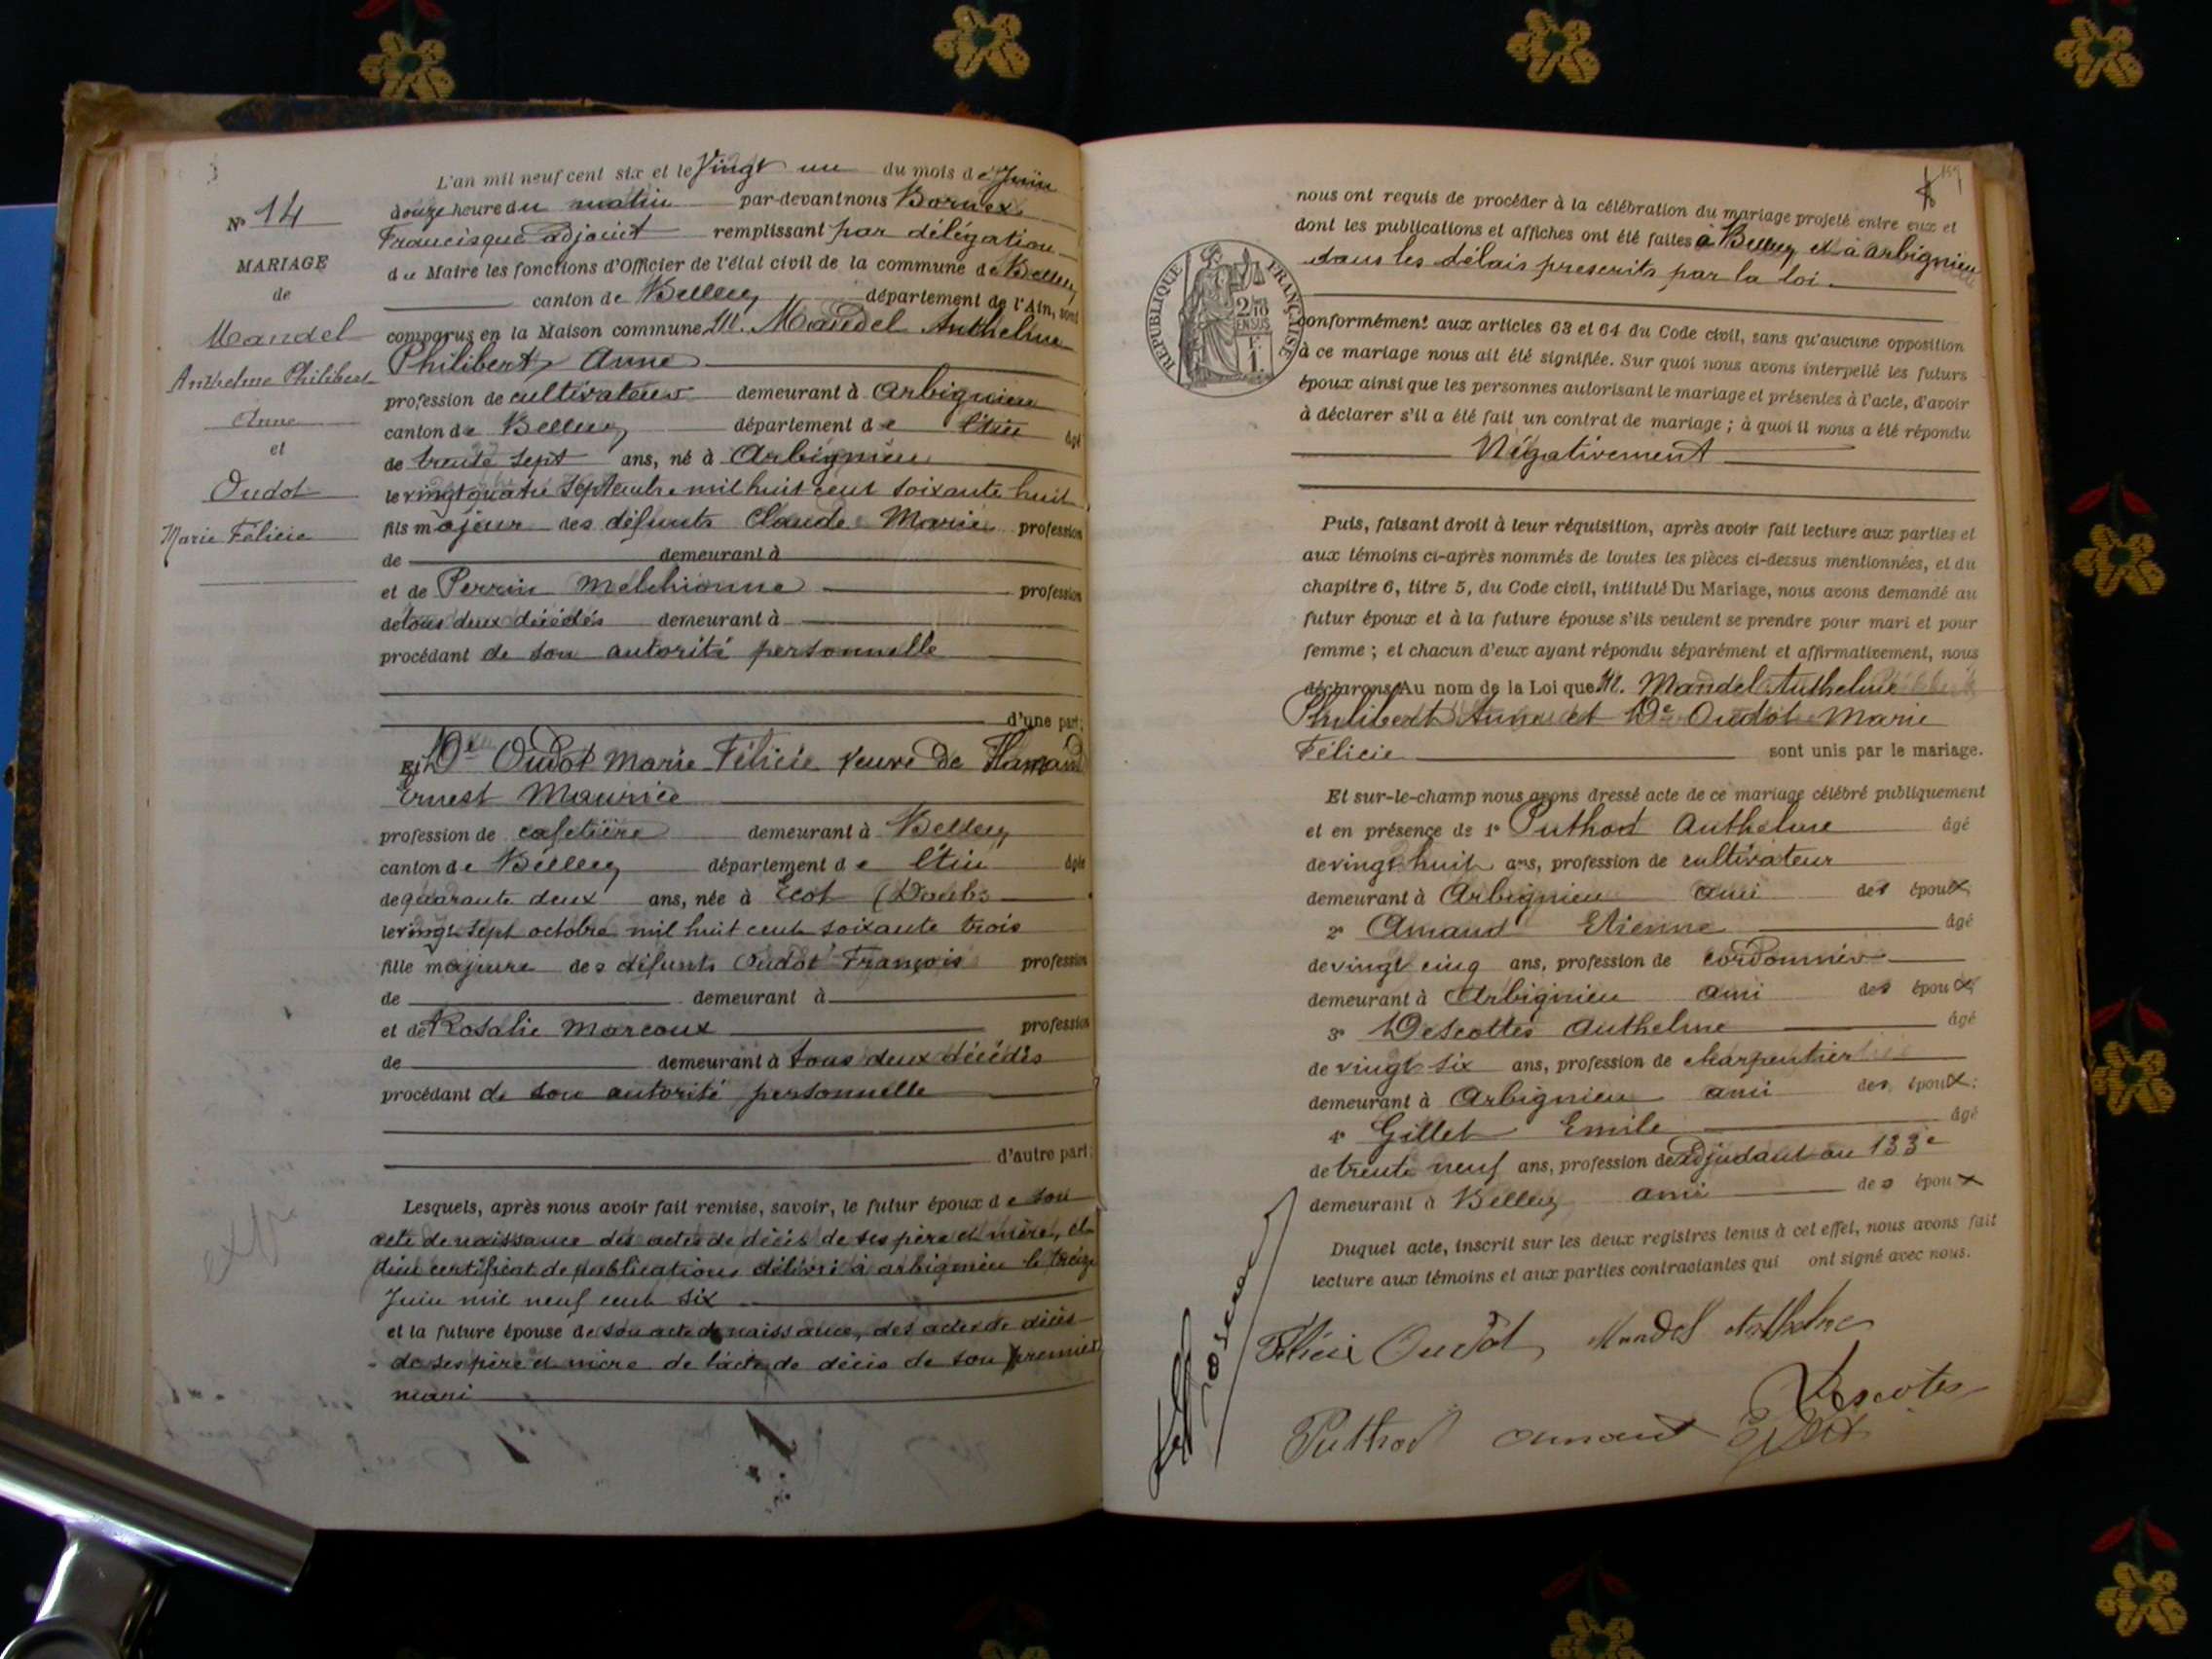 N° 14
MARIAGE
de
Mandel
Anthelme Philibert
Anne
et
Oudot
Marie Félicie
L'an mil neuf cent six et le Vingt un du mois de Juin
douze heure du matin par-devant nous Bornex
Francisque adjoint remplissant par délégation
du Maire les fonctions d'Officier de l'état civil de la commune de Belley
canton de Belley département de l'Ain, sont
comparus en la Maison commune M. Mandel Anthelme
Philibert, Anne
profession de cultivateur demeurant à Arbignieu
canton de Belley département de l'Ain âgé
de trente sept ans, né à Arbignieu
le vingt quatre Septembre mil huit cent soixante huit
fils majeur des défunts Claude Marie profession
de demeurant à
et de Perrin Melchionne profession
de tous deux décédés demeurant à
procédant de son autorité personnelle
d'une part;
Et De Oudot Marie Félicie veuve de Flamand
Ernest Maurice
profession de cafetière demeurant à Belley
canton de Belley département de l'Ain âgée
de quarante deux ans, née à Ecot (Doubs
le vingt sept octobre mil huit cent soixante trois
fille majeure des défunts Oudot François profession
de demeurant à
et de Rosalie Marcoux profession
de demeurant à tous deux décédés
procédant de son autorité personnelle
d'autre part;
Lesquels, après nous avoir fait remise, savoir, le futur époux de son
acte de naissance des actes de décès de ses père et mère, et
d'un certificat de publications délivré à arbignieu le treize
Juin mil neuf cent six
et la future épouse de son acte de naissance, des actes de décès
de ses père et mère de l'acte de décès de son premier
mari
159
nous ont requis de procéder à la célébration du mariage projeté entre eux et
dont les publications et affiches ont été faites à Belley et à arbignieu
dans les délais prescrits par la loi.
RÉPUBLIQUE FRANÇAISE
2/10
EN SUS
1 F.
conformément aux articles 63 et 64 du Code civil, sans qu'aucune opposition
à ce mariage nous ait été signifiée. Sur quoi nous avons interpellé les futurs
époux ainsi que les personnes autorisant le mariage et présentes à l'acte, d'avoir
à déclarer s'il a été fait un contrat de mariage ; à quoi il nous a été répondu
Négativement
Puis, faisant droit à leur réquisition, après avoir fait lecture aux parties et
aux témoins ci-après nommés de toutes les pièces ci-dessus mentionnées, et du
chapitre 6, titre 5, du Code civil, intitulé Du Mariage, nous avons demandé au
futur époux et à la future épouse s'ils veulent se prendre pour mari et pour
femme ; et chacun d'eux ayant répondu séparément et affirmativement, nous
déclarons Au nom de la Loi que M. Mandel Anthelme
Philibert Anne et De Oudot Marie
Félicie sont unis par le mariage.
Et sur-le-champ nous avons dressé acte de ce mariage célébré publiquement
et en présence de 1° Puthod Anthelme âgé
de vingt huit ans, profession de cultivateur
demeurant à Arbignieu ami des époux;
2° Amand Etienne âgé
de vingt cinq ans, profession de cordonnier
demeurant à Arbignieu ami des époux;
3° Descottes Anthelme âgé
de vingt six ans, profession de charpentier
demeurant à Arbignieu ami des époux;
4° Gillet Emile âgé
de trente neuf ans, profession de adjudant au 133e
demeurant à Belley ami des époux
Duquel acte, inscrit sur les deux registres tenus à cet effet, nous avons fait
lecture aux témoins et aux parties contractantes qui ont signé avec nous.
Félicie Oudot Mandel Anthelme
Descotes
Puthod Amand Gillet